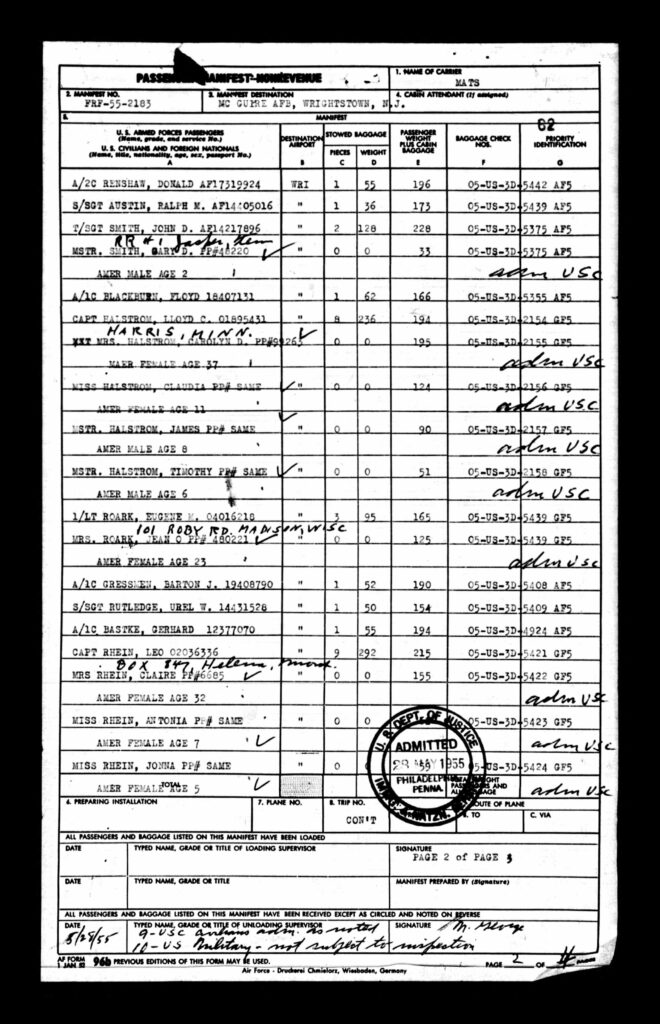 PASSENGER MANIFEST-NONREVENUE
1. NAME OF CARRIER
MATS
2. MANIFEST NO.
FRF-55-2183
3. MANIFEST DESTINATION
MC GUIRE AFB, WRIGHTSTOWN, N.J.
4. CABIN ATTENDANT (If assigned)
5. MANIFEST
82
U.S. ARMED FORCES PASSENGERS
(Name, grade, and service No.)
U.S. CIVILIANS AND FOREIGN NATIONALS
(Name, title, nationality, age, sex, passport No.)
A
DESTINATION AIRPORT
B
STOWED BAGGAGE
PIECES
C
WEIGHT
D
PASSENGER WEIGHT PLUS CABIN BAGGAGE
E
BAGGAGE CHECK NOS.
F
PRIORITY IDENTIFICATION
G
A/2C RENSHAW, DONALD AF17319924 WRI 1 55 196 05-US-3D-5442 AF5
S/SGT AUSTIN, RALPH M. AF14405016 " 1 36 173 05-US-3D-5439 AF5
T/SGT SMITH, JOHN D. AF14217896 " 2 128 228 05-US-3D-5375 AF5
RR #1 Jasper, Tenn
MSTR. SMITH, GARY D. PP#48220 ✓ " 0 0 33 05-US-3D-5375 AF5
AMER MALE AGE 2 adm USC
A/1C BLACKBURN, FLOYD 18407131 " 1 62 166 05-US-3D-5355 AF5
CAPT HALSTROM, LLOYD C. 01895431 " 8 236 194 05-US-3D-2154 GF5
HARRIS, MINN.
XXT MRS. HALSTROM, CAROLYN D. PP#99263 ✓ " 0 0 195 05-US-3D-2155 GF5
MAER FEMALE AGE 37 adm USC
MISS HALSTROM, CLAUDIA PP# SAME ✓ " 0 0 124 05-US-3D-2156 GF5
AMER FEMALE AGE 11 adm USC
MSTR. HALSTROM, JAMES PP# SAME ✓ " 0 0 90 05-US-3D-2157 GF5
AMER MALE AGE 8 adm USC
MSTR. HALSTROM, TIMOTHY PP# SAME ✓ " 0 0 51 05-US-3D-2158 GF5
AMER MALE AGE 6 adm USC
1/LT ROARK, EUGENE M. 04016218 " 3 95 165 05-US-3D-5439 GF5
101 ROBY RD. MADISON, WISC
MRS. ROARK, JEAN O PP# 480221 ✓ " 0 0 125 05-US-3D-5439 GF5
AMER FEMALE AGE 23 adm USC
A/1C GRESSMEN, BARTON J. 19408790 " 1 52 190 05-US-3D-5408 AF5
S/SGT RUTLEDGE, UREL W. 14431528 " 1 50 154 05-US-3D-5409 AF5
A/1C BASTKE, GERHARD 12377070 " 1 55 194 05-US-3D-4924 AF5
CAPT RHEIN, LEO 02036336 " 9 292 215 05-US-3D-5421 GF5
BOX 847, Helena, Mont.
MRS RHEIN, CLAIRE PP#6685 ✓ " 0 0 155 05-US-3D-5422 GF5
AMER FEMALE AGE 32 adm USC
MISS RHEIN, ANTONIA PP# SAME " 0 0 05-US-3D-5423 GF5
AMER FEMALE AGE 7 ✓ adm USC
MISS RHEIN, JONNA PP# SAME " 0 05-US-3D-5424 GF5
AMER FEMALE AGE 5 ✓ adm USC
TOTAL
U. S. DEPT. OF JUSTICE
ADMITTED
28 MAY 1955
PHILADELPHIA
PENNA.
6. PREPARING INSTALLATION
7. PLANE NO.
8. TRIP NO.
CON'T
ROUTE OF PLANE
B. TO
C. VIA
ALL PASSENGERS AND BAGGAGE LISTED ON THIS MANIFEST HAVE BEEN LOADED
DATE
TYPED NAME, GRADE OR TITLE OF LOADING SUPERVISOR
SIGNATURE
PAGE 2 of PAGE 3
DATE
TYPED NAME, GRADE OR TITLE
MANIFEST PREPARED BY (Signature)
ALL PASSENGERS AND BAGGAGE LISTED ON THIS MANIFEST HAVE BEEN RECEIVED EXCEPT AS CIRCLED AND NOTED ON REVERSE
DATE
5/28/55
TYPED NAME, GRADE OR TITLE OF UNLOADING SUPERVISOR
9-USC civilians adm. as noted
10-US Military - not subject to inspection
SIGNATURE
AF FORM 1 JAN 53 96b PREVIOUS EDITIONS OF THIS FORM MAY BE USED.
PAGE 2 OF 4 PAGES
Air Force - Druckerei Chmielorz, Wiesbaden, Germany